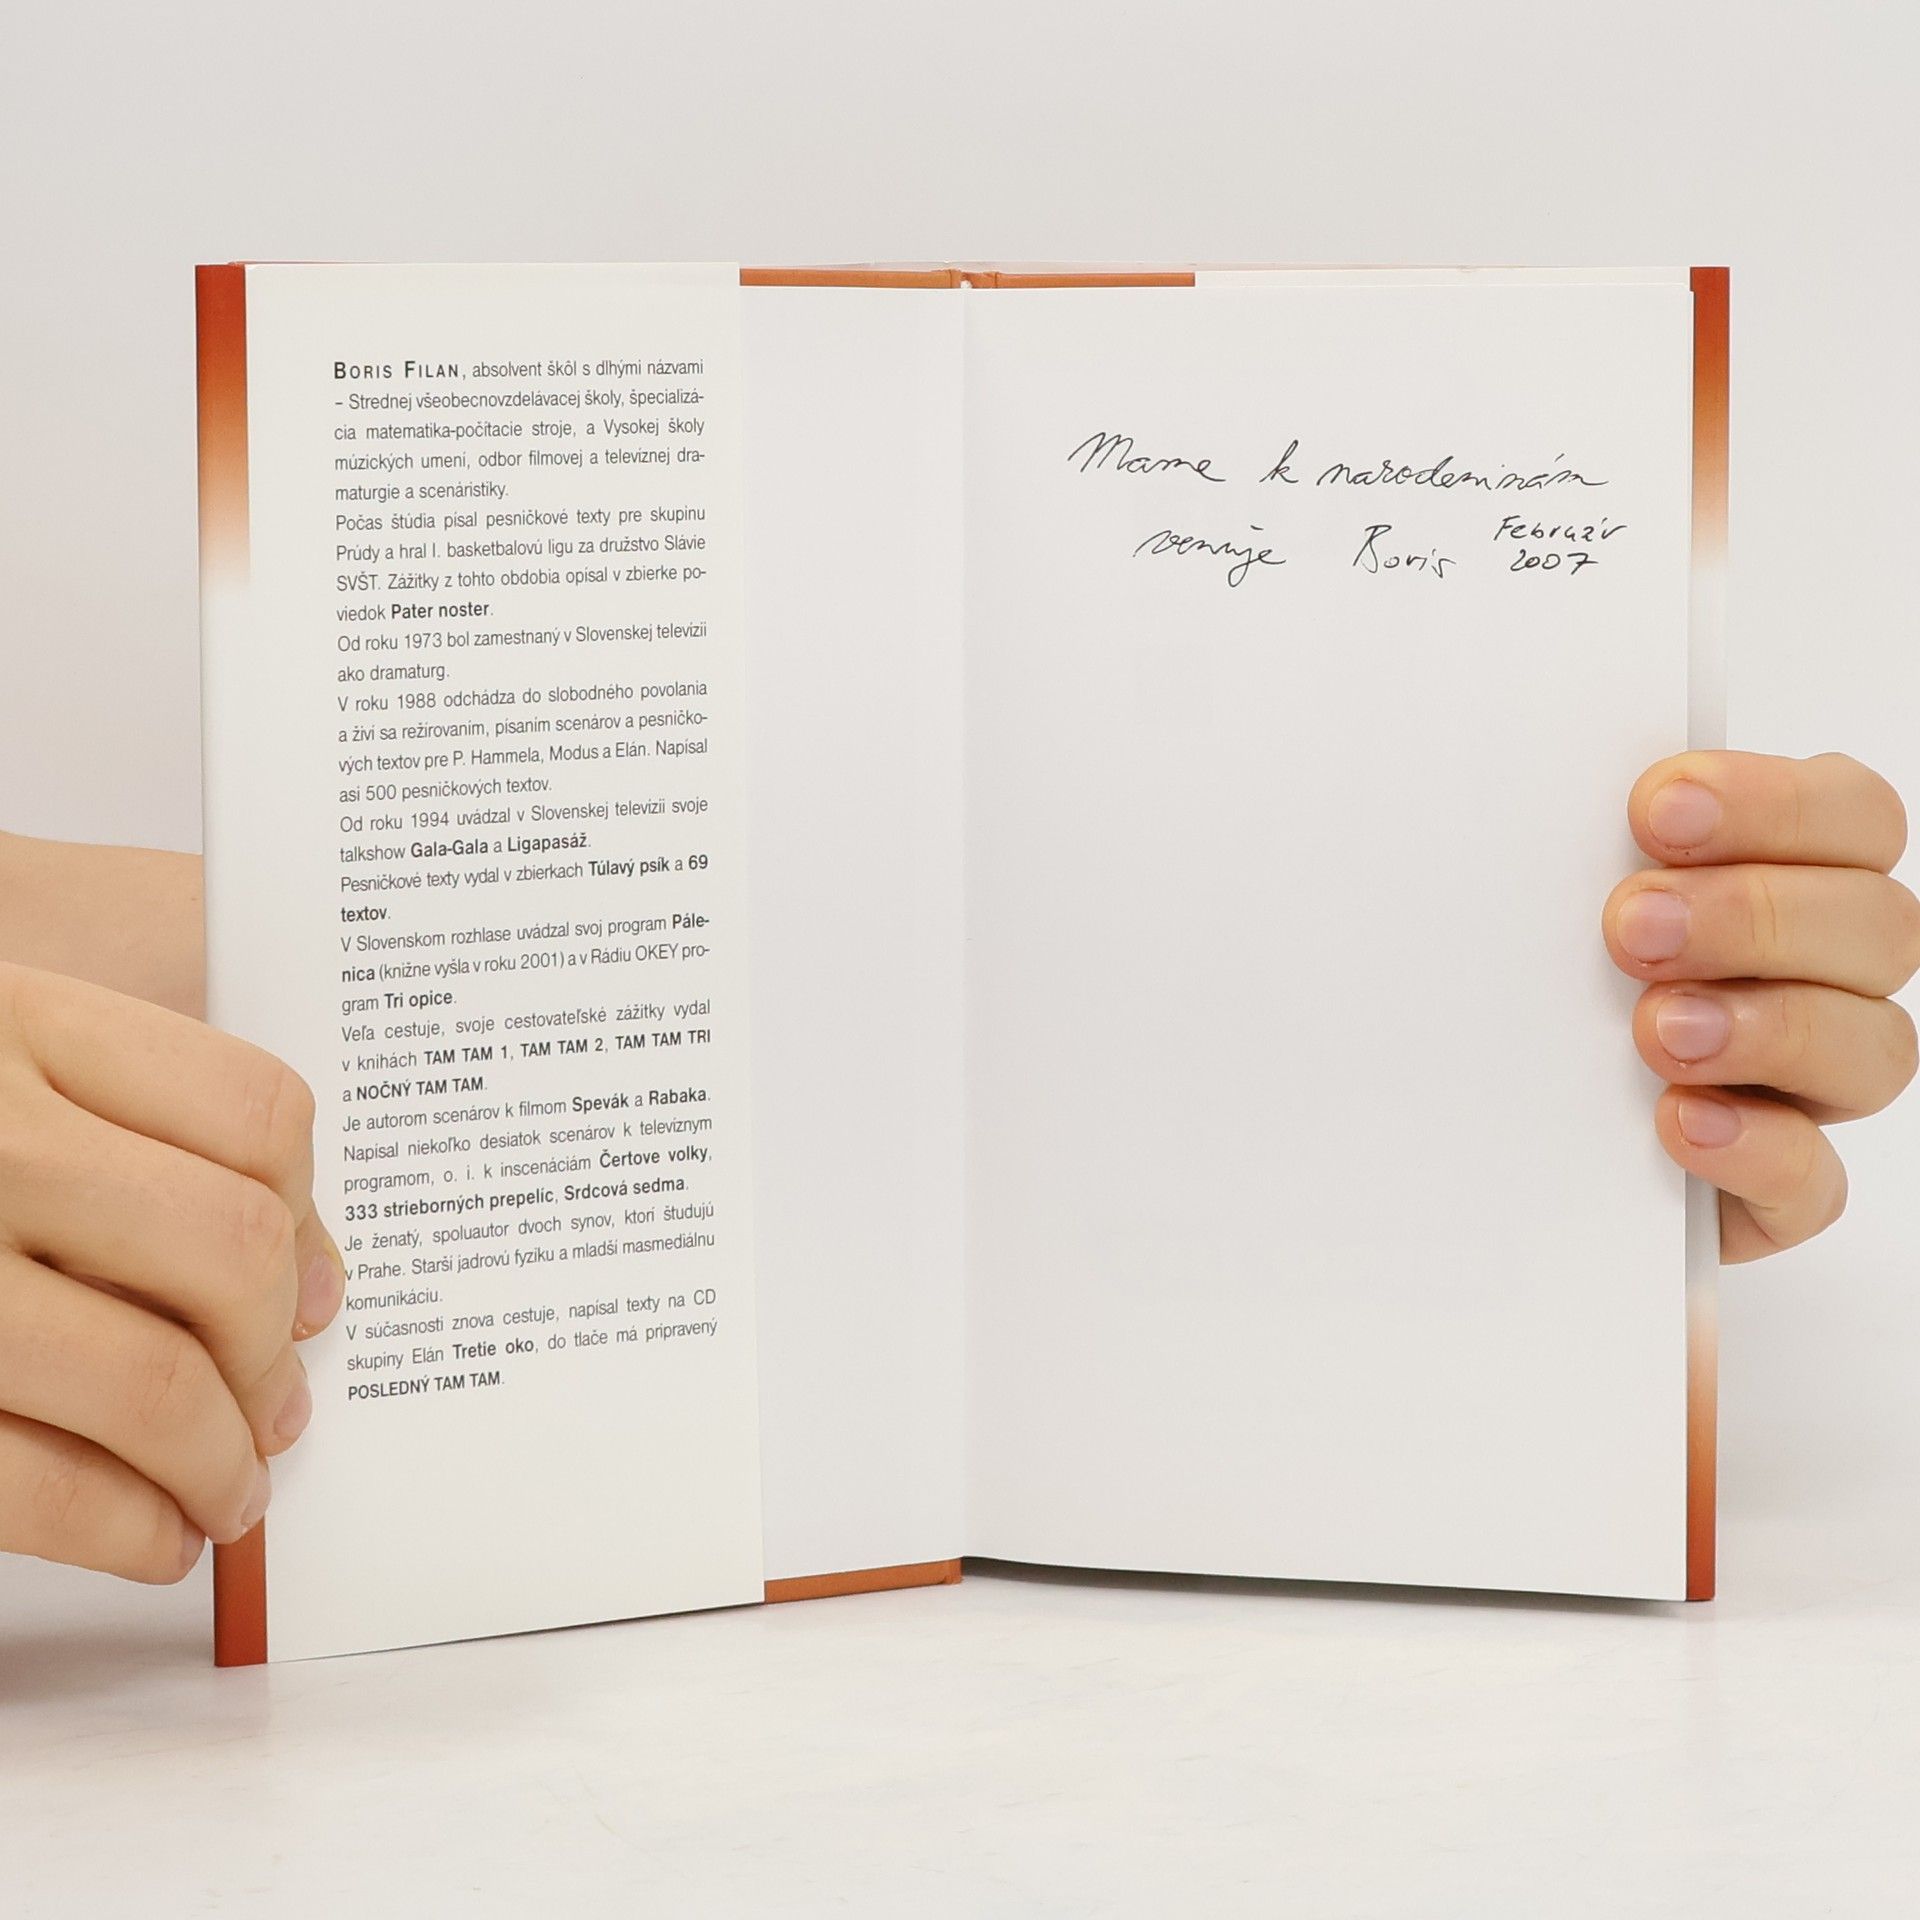 BORIS FILAN, absolvent škôl s dlhými názvami
– Strednej všeobecnovzdelávacej školy, špecializá-
cia matematika-počítacie stroje, a Vysokej školy
múzických umení, odbor filmovej a televíznej dra-
maturgie a scenáristiky.
Počas štúdia písal pesničkové texty pre skupinu
Prúdy a hral I. basketbalovú ligu za družstvo Slávie
SVŠT. Zážitky z tohto obdobia opísal v zbierke po-
viedok Pater noster.
Od roku 1973 bol zamestnaný v Slovenskej televízii
ako dramaturg.
V roku 1988 odchádza do slobodného povolania
a živí sa režírovaním, písaním scenárov a pesničko-
vých textov pre P. Hammela, Modus a Elán. Napísal
asi 500 pesničkových textov.
Od roku 1994 uvádzal v Slovenskej televízii svoje
talkshow Gala-Gala a Ligapasáž.
Pesničkové texty vydal v zbierkach Túlavý psík a 69
textov.
V Slovenskom rozhlase uvádzal svoj program Pále-
nica (knižne vyšla v roku 2001) a v Rádiu OKEY pro-
gram Tri opice.
Veľa cestuje, svoje cestovateľské zážitky vydal
v knihách TAM TAM 1, TAM TAM 2, TAM TAM TRI
a NOČNÝ TAM TAM.
Je autorom scenárov k filmom Spevák a Rabaka.
Napísal niekoľko desiatok scenárov k televíznym
programom, o. i. k inscenáciám Čertove volky,
333 strieborných prepelíc, Srdcová sedma.
Je ženatý, spoluautor dvoch synov, ktorí študujú
v Prahe. Starší jadrovú fyziku a mladší masmediálnu
komunikáciu.
V súčasnosti znova cestuje, napísal texty na CD
skupiny Elán Tretie oko, do tlače má pripravený
POSLEDNÝ TAM TAM.
Mame k narodeninám
venuje Boris Február
2007